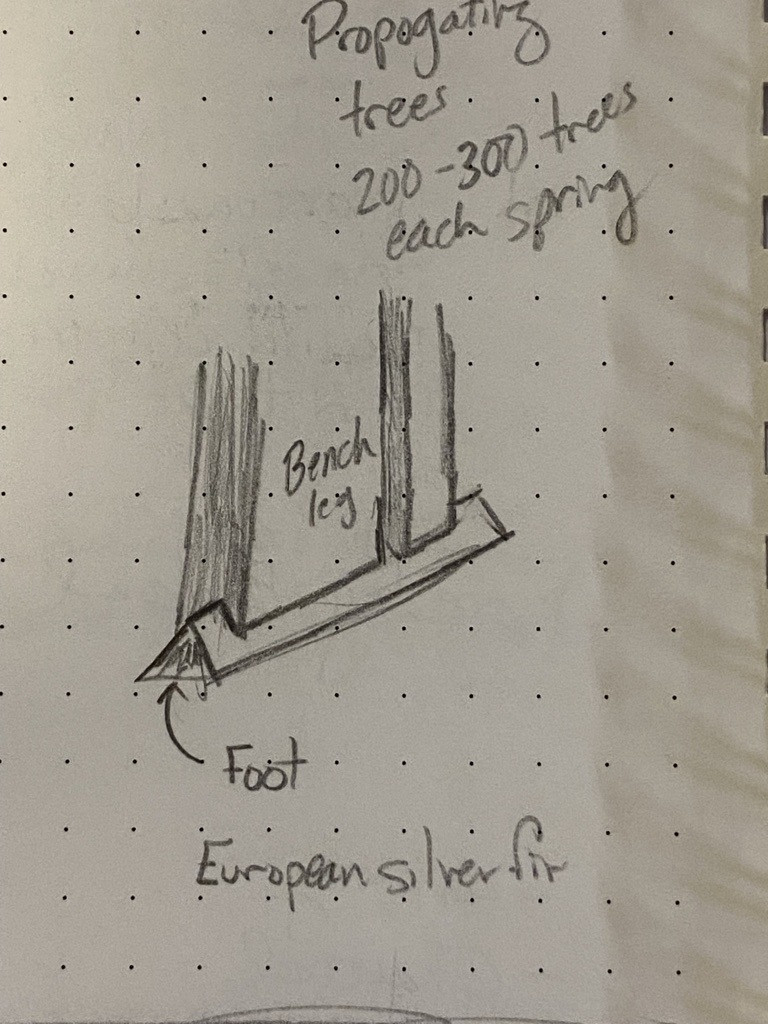 Propogating
trees
200-300 trees
each spring
Bench
leg
Foot
European silver fir